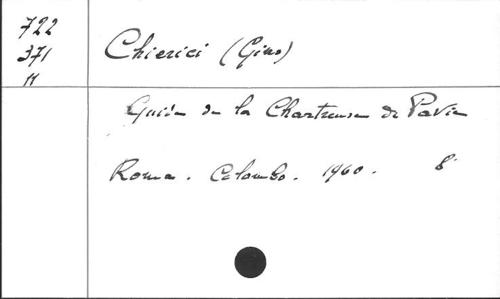 722
371
11
Chierici (Gino)
Guide de la Chartreuse de Pavie
Roma. Colombo. 1960. 8°